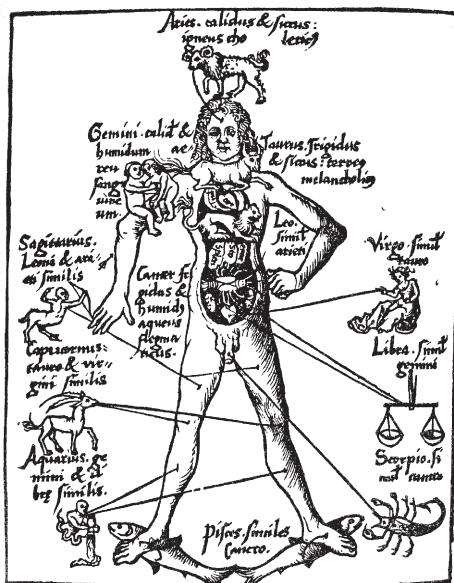 Aries. calidus & siccus:
igneus cho lericꝰ
Gemini. calid & ae
humidum
reu
sang
uine
um.
Taurus. frigidus
& siccus: terreꝰ
melancholicꝰ
Leo.
simil
arieti
Sagittarius.
Leoni & ari-
eti similis
Cancer fri
gidus &
humidꝰ
aqueus
flegma
ticus.
Virgo. simil
tauro
Capricornus.
tauro & vir-
gini similis
Libra. simil
gemini
Aquarius. ge
mini & li
bre similis.
Scorpio. si
mil cancro
Pisces. similes
Cancro.